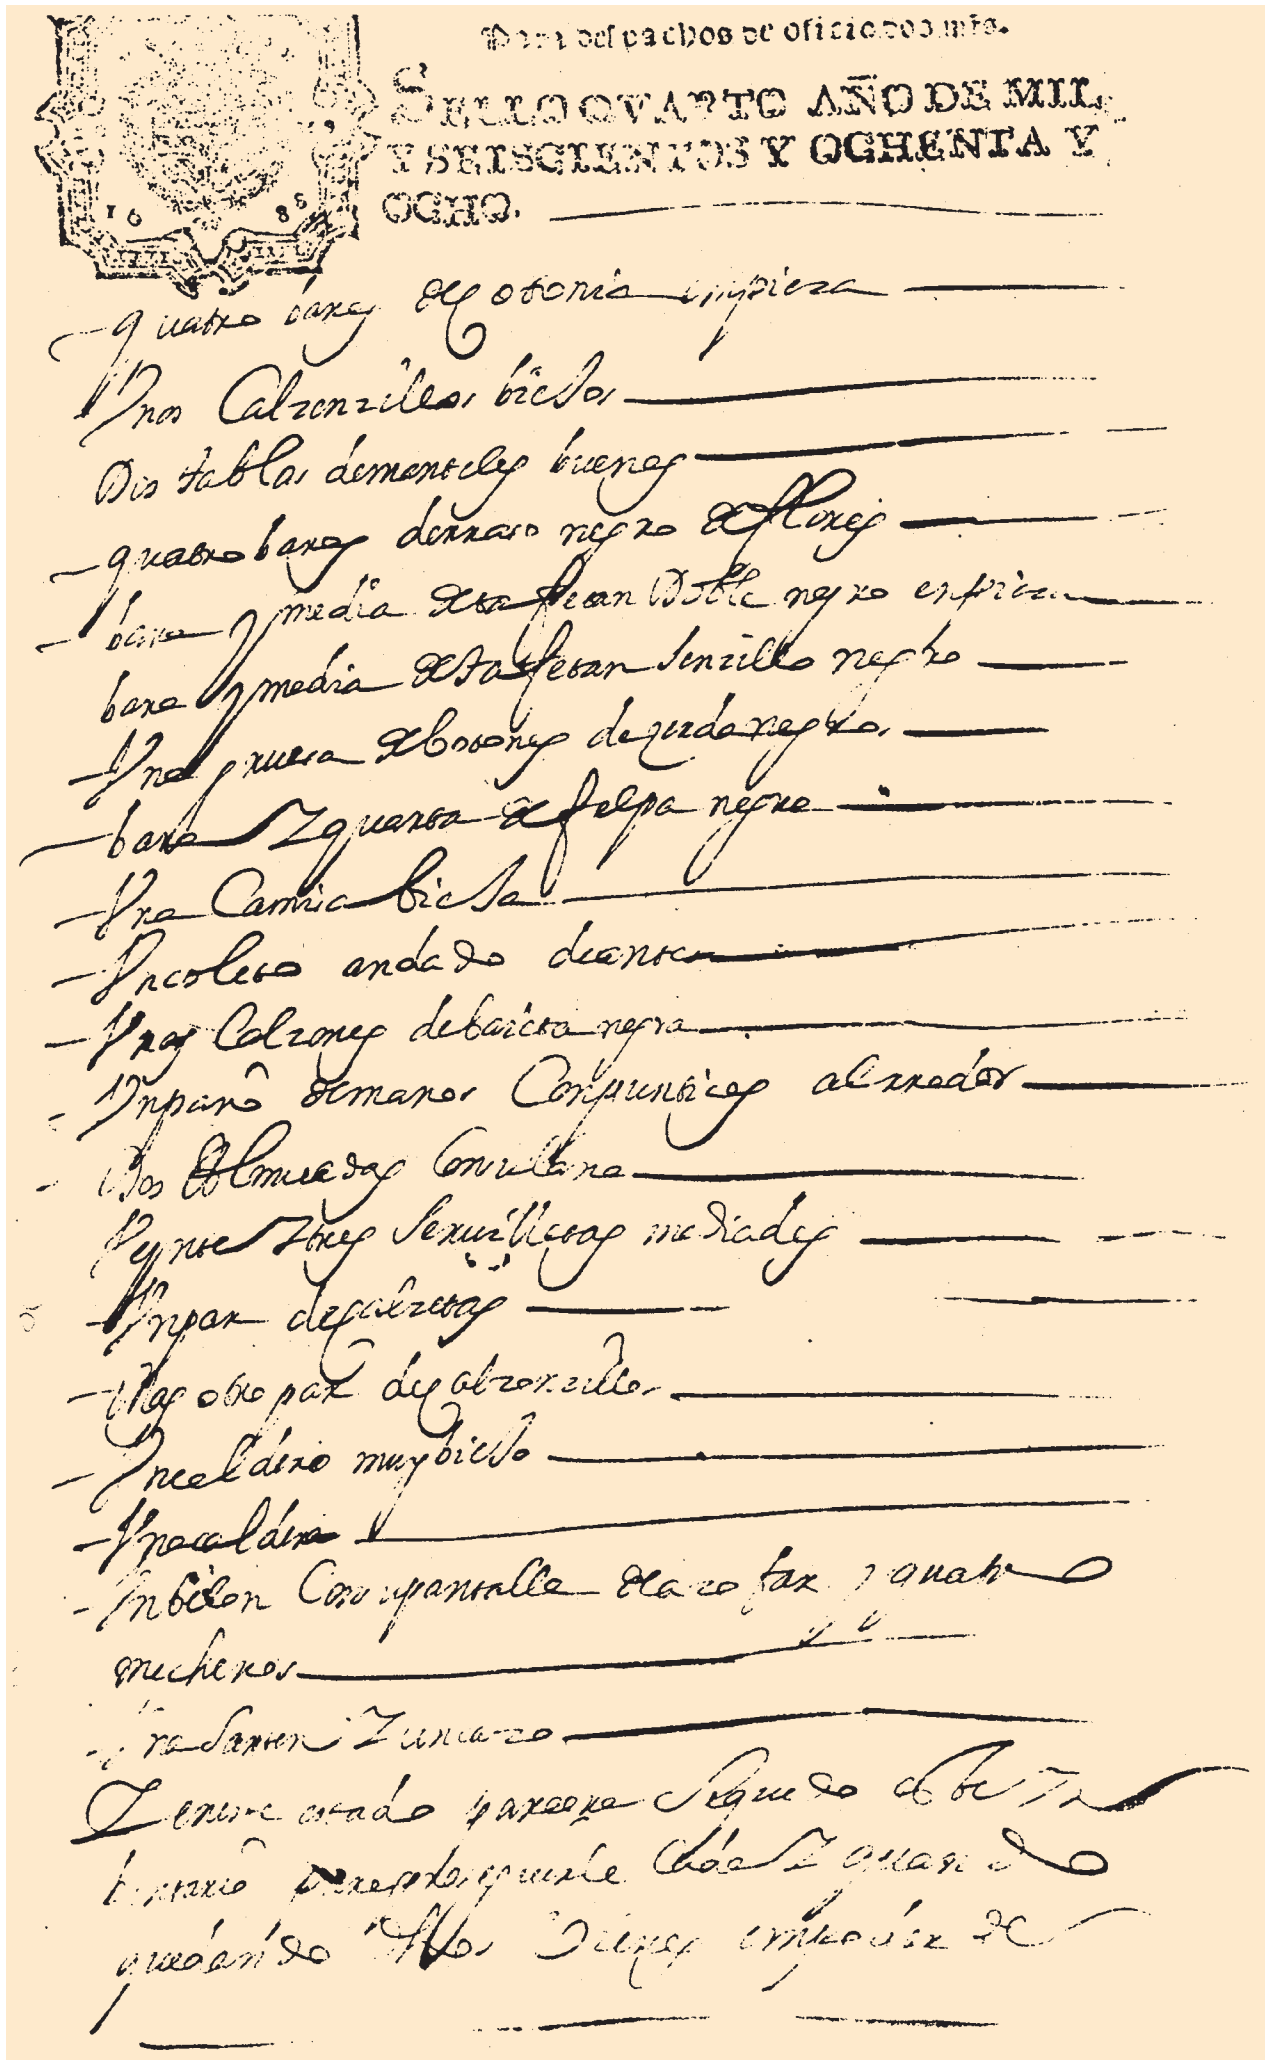 Para despachos de oficio dos mrs.
SELLO QVARTO AÑO DE MIL
Y SEISCIENTOS Y OCHENTA Y
OCHO.
1688
quatro baras de cotonia empieza
Vnos Calzonzillos biejos
Dos tablas demanteles buenas
quatro baras derraso negro de flores
bara y media de tafetan Doble negro enpieza
bara y media de tafetan senzillo negro
Vna gruesa de botones de zerda negros
bara Y quarta de felpa negra
Vna Camisa bieja
Vn coleto andado de ante
Vnos Calzones debaieta negra
Vn paño de manos Con punticas alrredor
Dos Almuadas Con su lana
Veynte Y tres seruilletas mediadas
Vn par de calzetas
Mas otro par de calzonzillos
Vn caldero muy biejo
Vna caldera
Vn belon Con su pantalla de azofar y quatro
mecheros
Vna Sarten Y un cazo
Y en este estado para que Seguido este In
bentario para el dia y quando
quedando dhos vienes en poder de